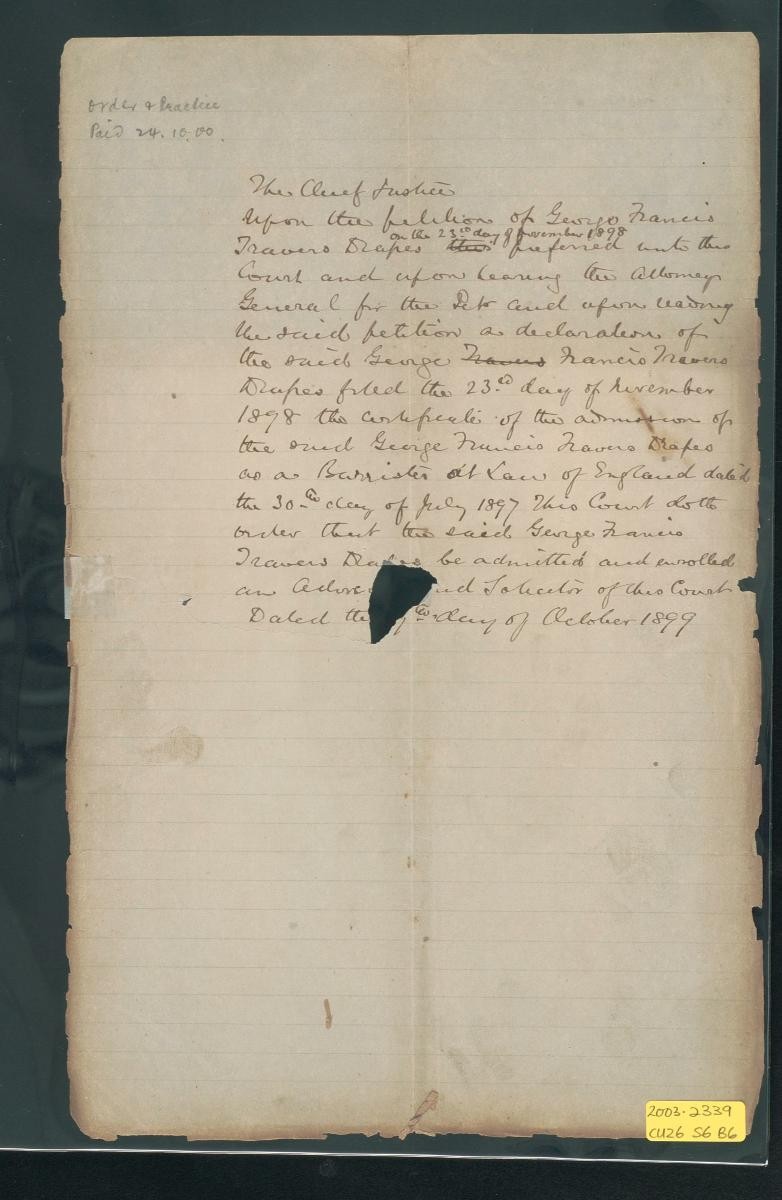 Order & Practice
Paid 24.10.00.
The Chief Justice
Upon the petition of George Francis
on the 23rd day of November 1898
Travers Drapes this preferred unto this
Court and upon hearing the Attorney
General for the Petr and upon reading
the said petition a declaration of
the said George Travers Francis Travers
Drapes filed the 23rd day of November
1898 the certificate of the admission of
the said George Francis Travers Drapes
as a Barrister at Law of England dated
the 30th day of July 1897 This Court doth
order that the said George Francis
Travers Drapes be admitted and enrolled
an Advoc nd Solicitor of this Court
Dated the th day of October 1899
2003-2339
CU26 S6 B6